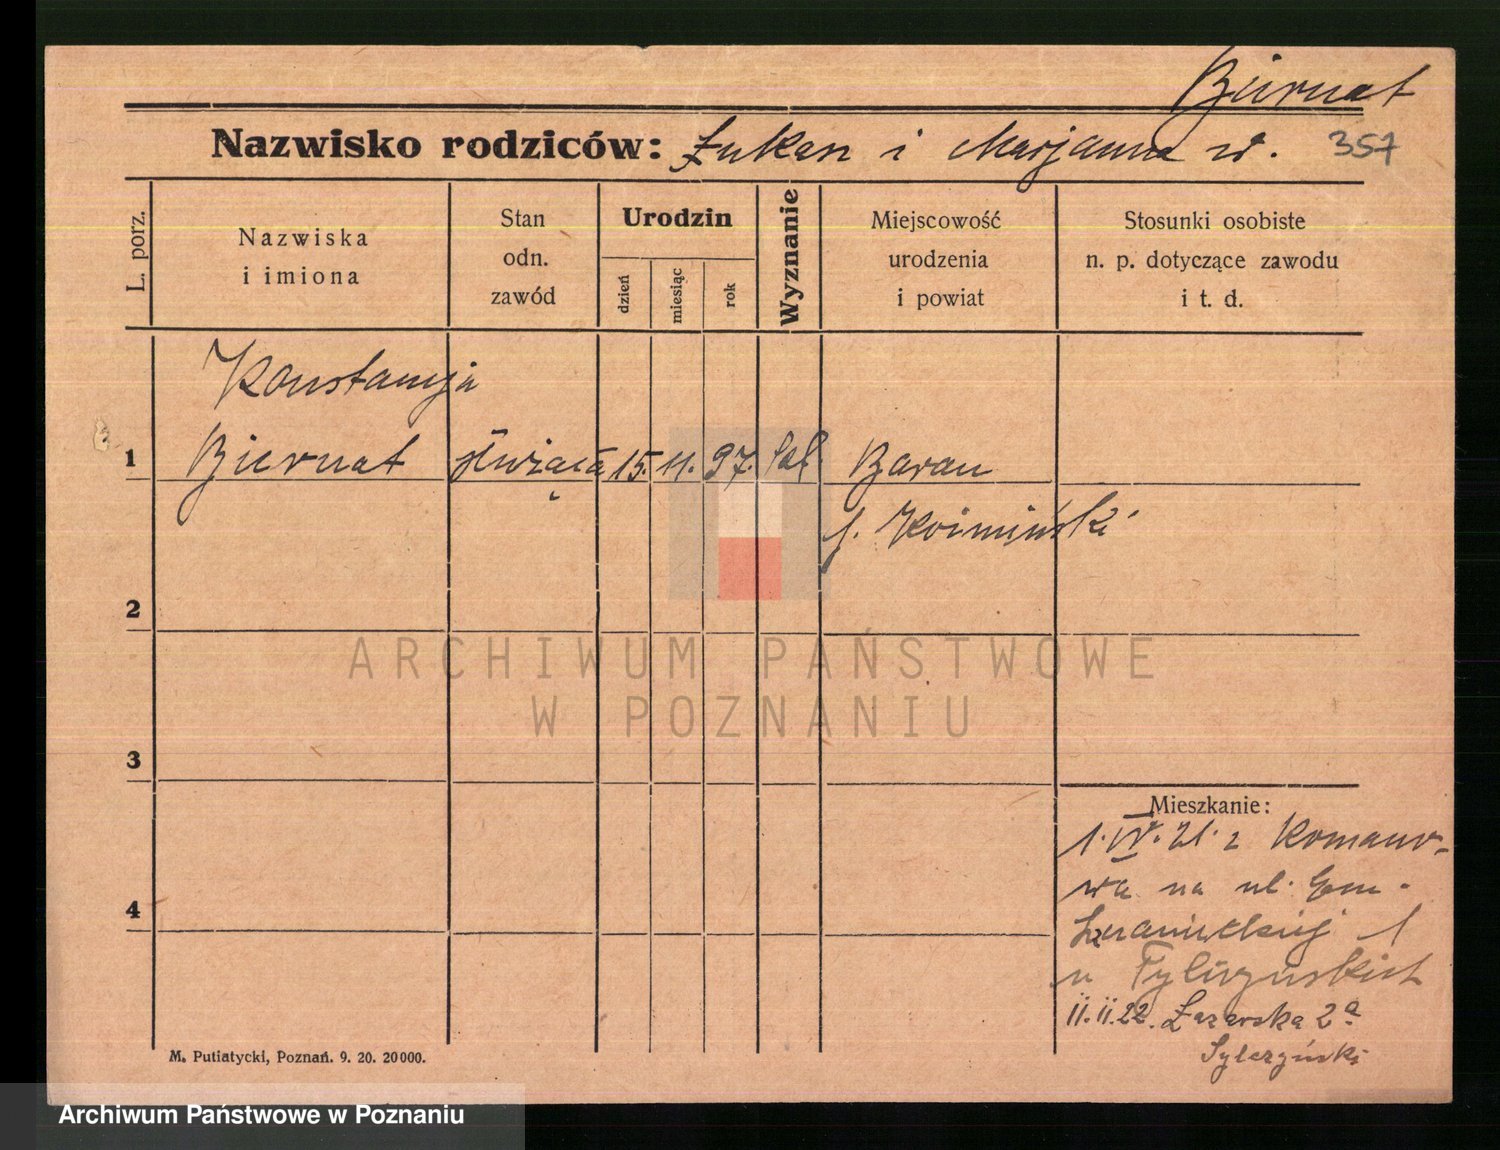 Biernat
Nazwisko rodziców: Łukasz i Marjanna
357
L. porz.
Nazwiska
i imiona
Stan
odn.
zawód
Urodzin
dzień
miesiąc
rok
Wyznanie
Miejscowość
urodzenia
i powiat
Stosunki osobiste
n. p. dotyczące zawodu
i t. d.
Konstancja
1 Biernat służąca 15. 11. 97. Baran
2
3
4
Mieszkanie:
1. IV. 21. z Romano-
wa na ul.
1
II. II. 22. Łazarska 2a
Sylczyński
M. Putiatycki, Poznań. 9. 20. 20000.
ARCHIWUM PAŃSTWOWE
W POZNANIU
Archiwum Państwowe w Poznaniu